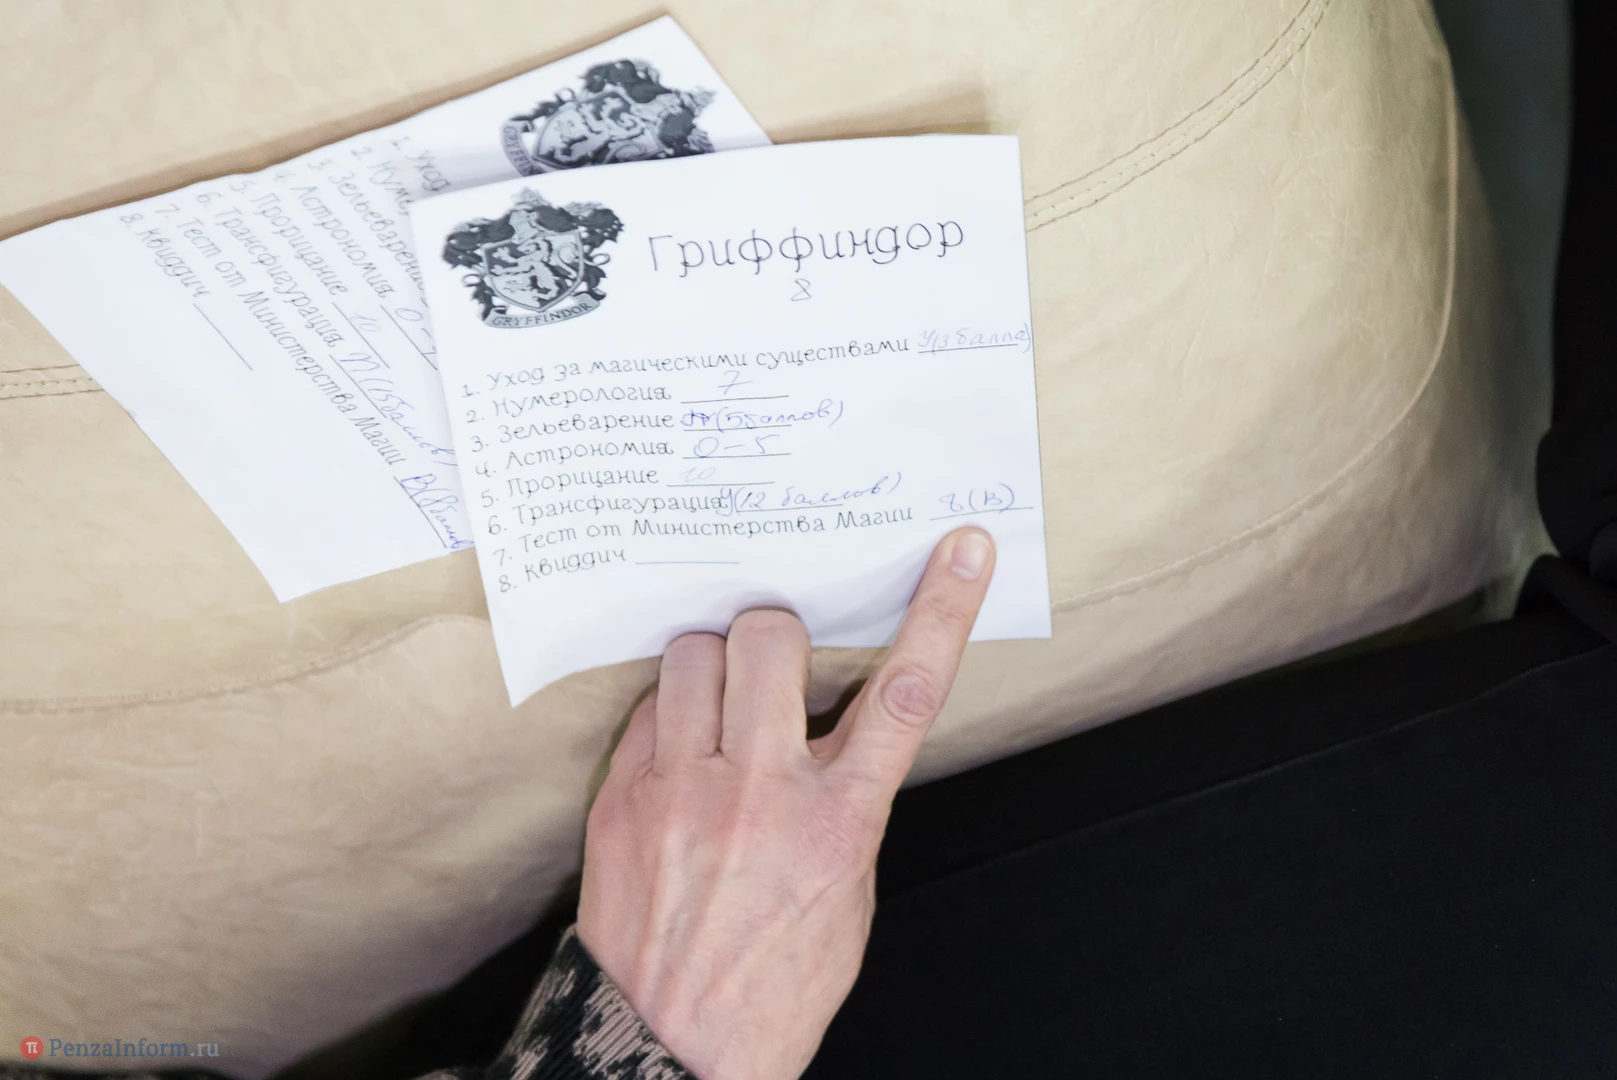 GRYFFINDOR
Гриффиндор
8
1. Уход за магическими существами У(3 балла)
2. Нумерология 7
3. Зельеварение (5 баллов)
4. Астрономия 0-5
5. Прорицание 10
6. Трансфигурация У(12 баллов)
7. Тест от Министерства Магии 8(В)
8. Квиддич
GRYFFIN
1. Уход
2. Нуме
3. Зельеварение
4. Астрономия 0-
5. Прорицание 10
6. Трансфигурация П(15 баллов)
7. Тест от Министерства Магии В(8 балло
8. Квиддич
PenzaInform.ru